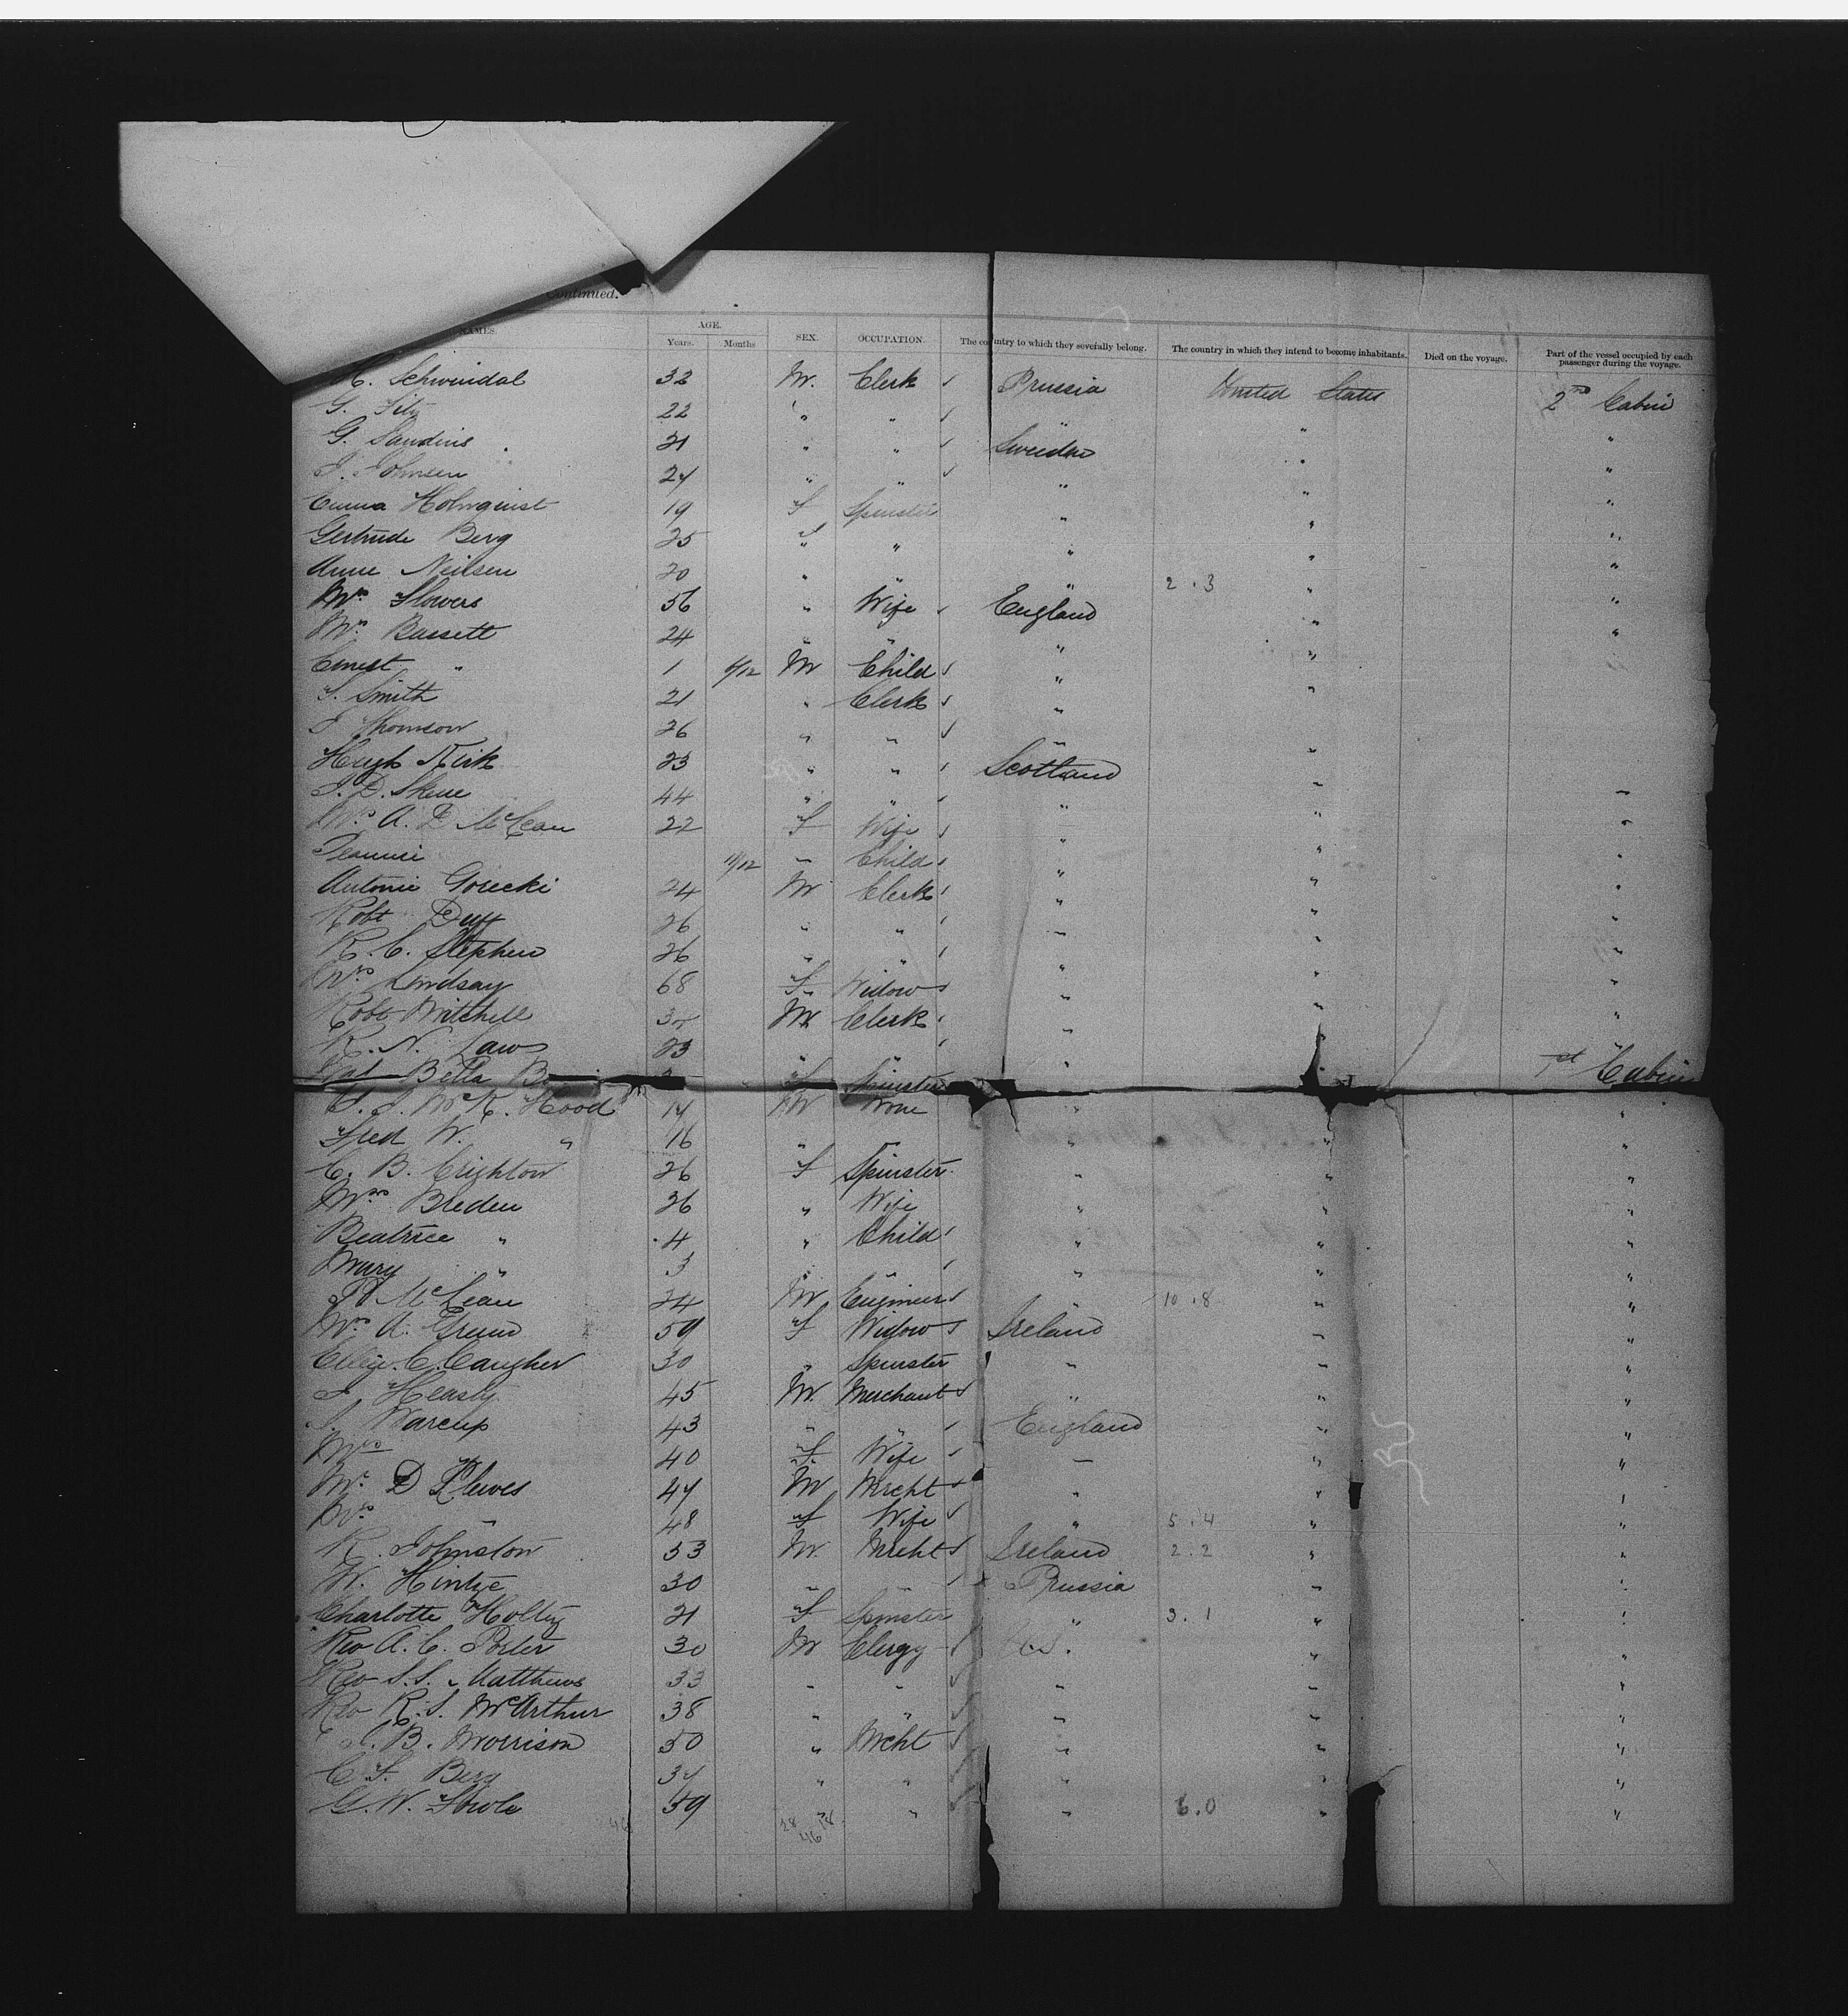 Continued.
NAMES. AGE. Years. Months SEX. OCCUPATION. The country to which they severally belong. The country in which they intend to become inhabitants. Died on the voyage. Part of the vessel occupied by each passenger during the voyage.
Schwindal 32 M. Clerk Prussia United States 2nd Cabin
G. 22 " " " "
G. 21 " " Sweden " "
J. Johnsen 24 " " " " "
Emma Holmquist 19 F Spinster " " "
Gertrude Berg 25 " " " " "
Anne Neilsen 20 " " " 2.3 " "
Mrs Flowers 56 " Wife England " "
Mrs Bassett 24 " " " "
Ernest " 1 6/12 M Child " "
S. Smith 21 " Clerk "
J Thomson 26 " " " "
Hugh Kirk 23 " " Scotland "
J. D. Skene 44 " " " " "
Mrs A. D McLean 22 F Wife " " "
Jeannie 11/12 " Child " " "
Antonie Gorecki 24 M Clerk " " "
Robt Duff 26 " " " " "
R. C. Stephen 26 " " " " "
Mrs Lindsay 68 F Widow " " "
Robt Mitchell M Clerk " "
R. N. Laws 23 " " " " 1st Cabin
Bella F Spinster
McK. Hood 14 M None " "
Fred W. " 16 " " " "
C. B. Crighton 26 F Spinster " " "
Mrs Breden 26 " Wife " " "
Beatrice " 4 " Child " " "
Mary " 3 " " " " "
McLean 24 M Engineer " 10.8 " "
Mrs A. 59 F Widow Ireland " "
30 " Spinster " " "
J. Heasly 45 M. Merchant " " "
Warcup 43 " " England " "
Mrs 40 F Wife " " "
Mr D Plewes 47 M Mrcht " " "
Mrs " 48 F Wife " 5.4 " "
R. Johnston 53 M. Mrcht Ireland 2.2 " "
W. Hintze 30 " " Prussia " "
Charlotte Holtej 21 F Spinster " 3.1 " "
Rev A. C. Porter 30 M Clergy U.S. " "
Rev S. S. Matthews 33 " " " " "
Rev R. S. McArthur 38 " " " " "
B. Morrison 50 " Mcht " " "
C. F. Berg 34 " " " " "
G. W. Fowle 59 " " " 6.0 " "
28 18
46